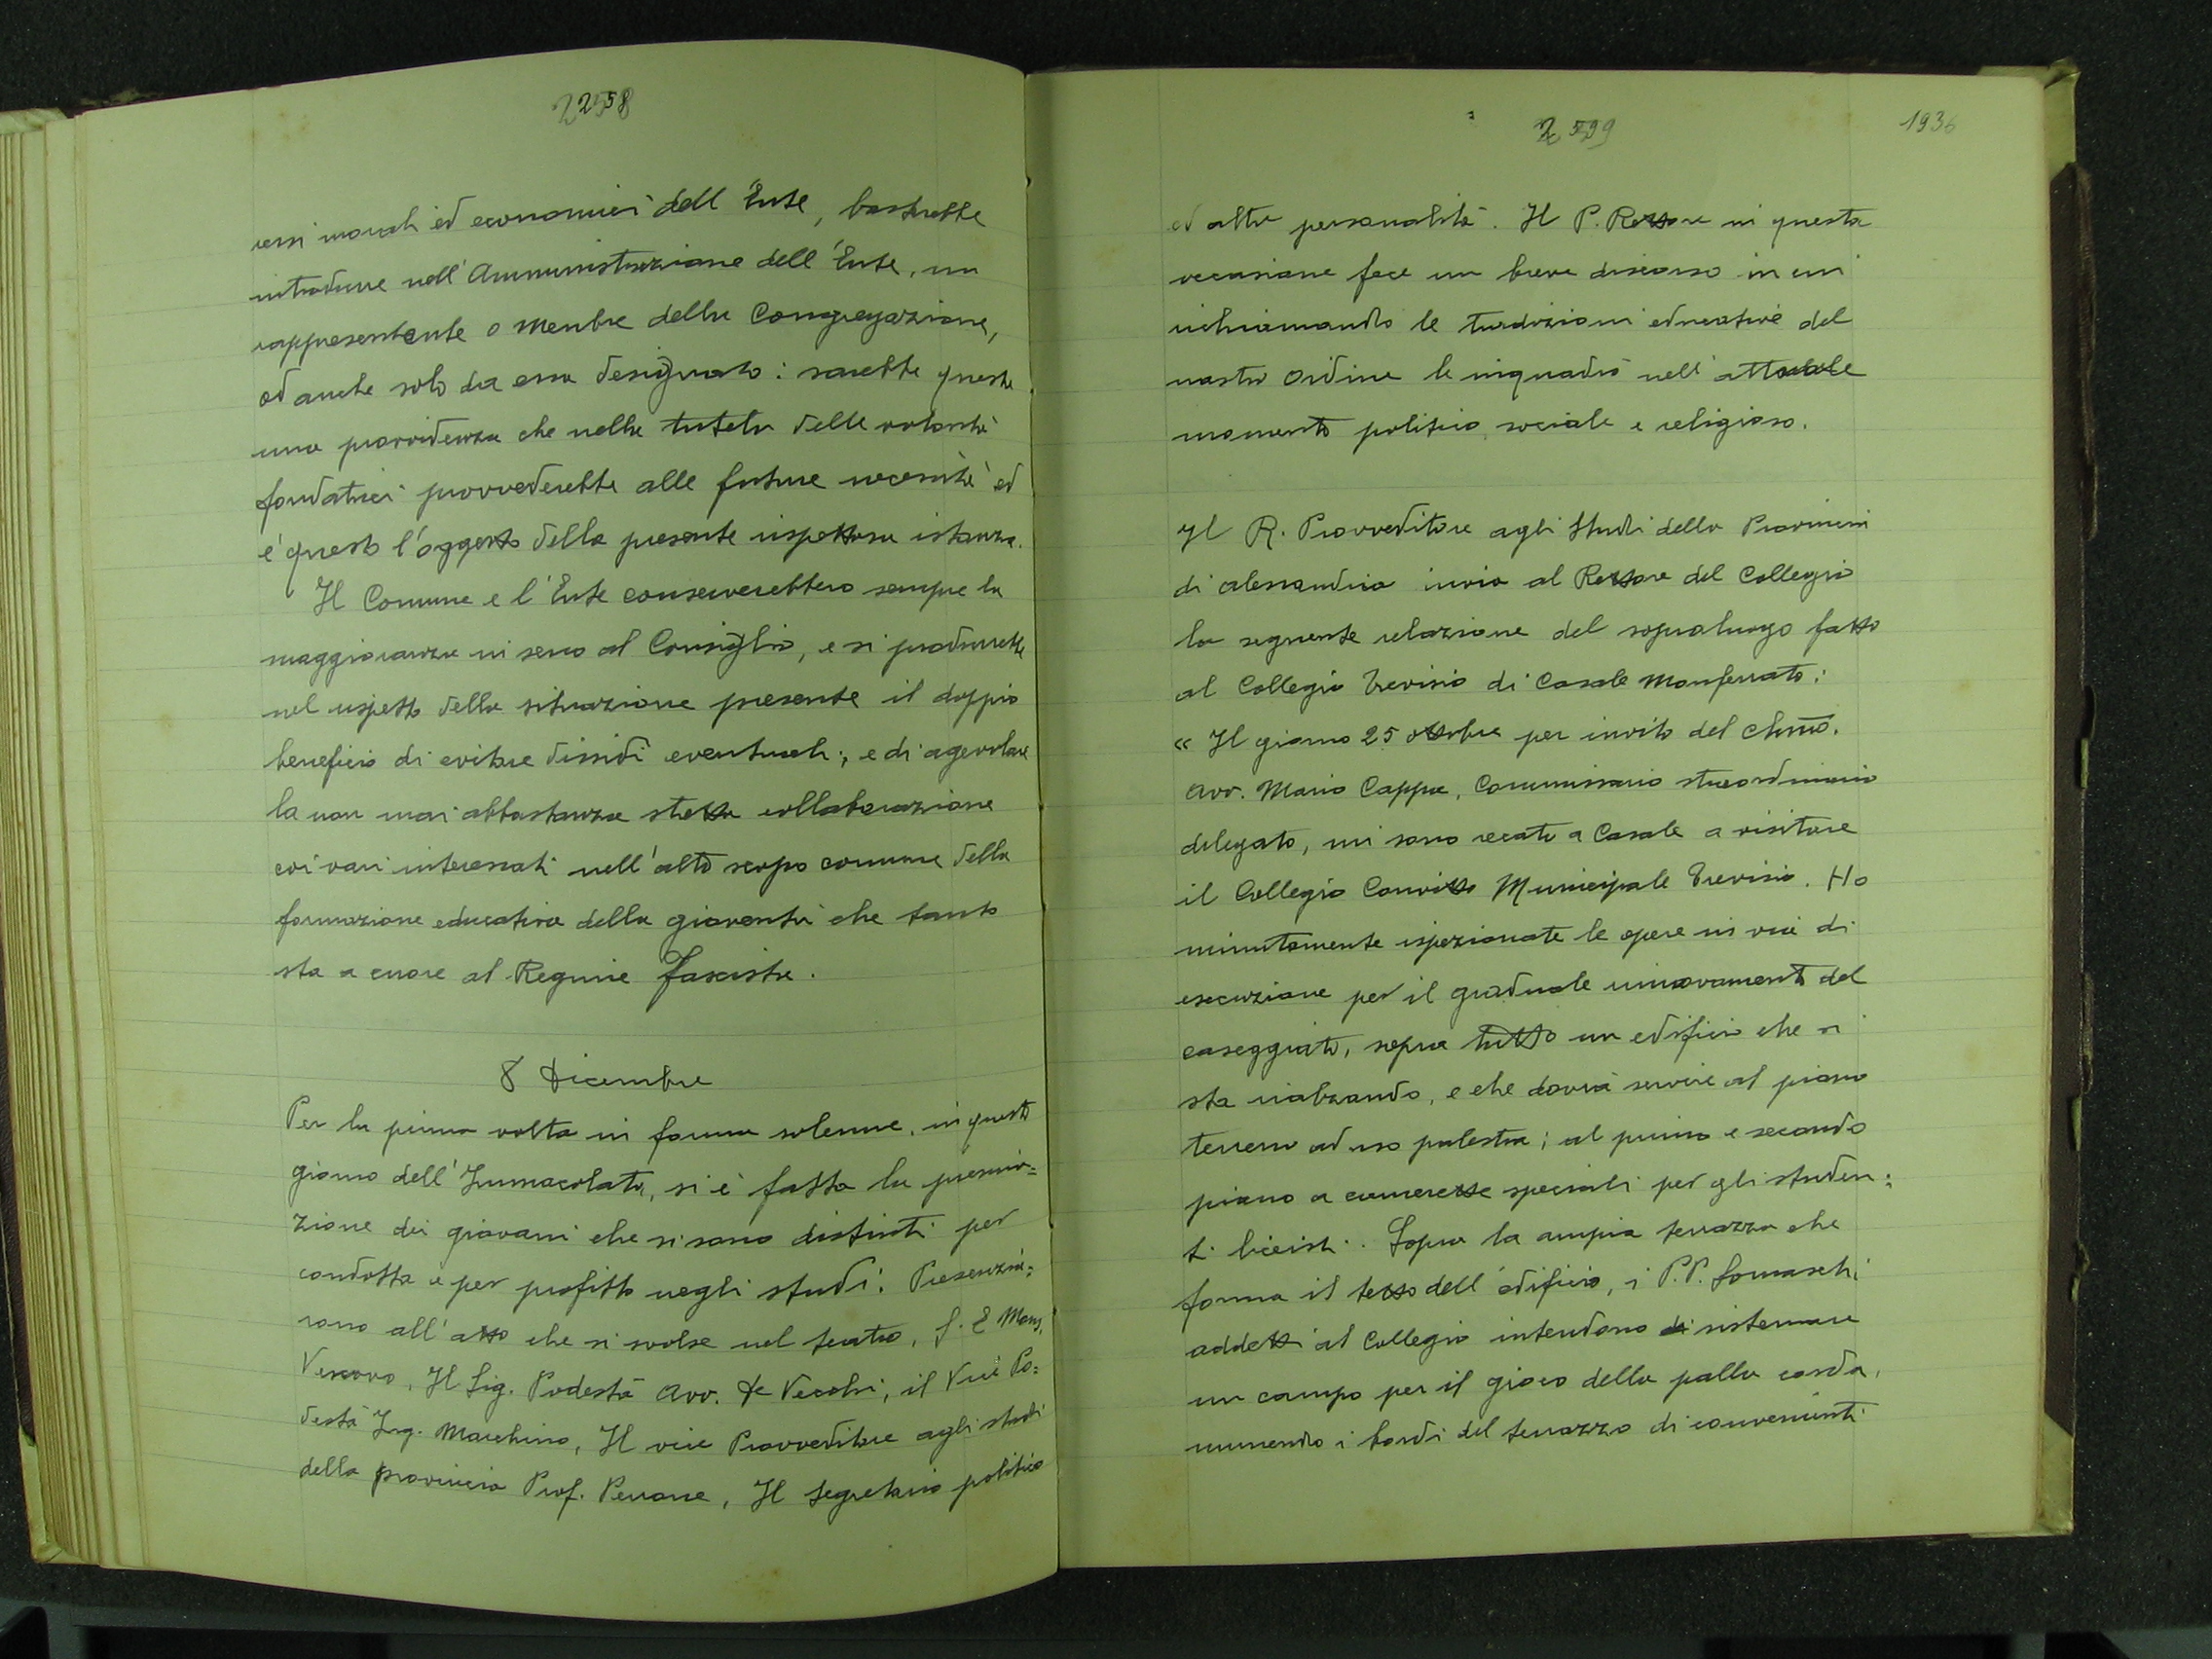 2258
ressi morali ed economici dell'Ente, basterebbe
introdurre nell'Amministrazione dell'Ente, un
rappresentante o membro della Congregazione,
od anche solo da essa designato: sarebbe questa
una provvidenza che nella tutela delle volontà
fondatrici provvederebbe alle future necessità ed
è questo l'oggetto della presente rispettosa istanza.
Il Comune e l'Ente conserverebbero sempre la
maggioranza in seno al Consiglio, e si produrrebbe
nel rispetto della situazione presente il doppio
beneficio di evitare dissidi eventuali; e di agevolare
la non mai abbastanza stretta collaborazione
coi vari interessati nell'alto scopo comune della
formazione educativa della gioventù che tanto
sta a cuore al Regime Fascista.
8 Dicembre
Per la prima volta in forma solenne, in questo
giorno dell'Immacolata, si è fatta la premia=
zione dei giovani che si sono distinti per
condotta e per profitto negli studi. Presenzia=
rono all'atto che si svolse nel teatro, S. E Mons.
Vescovo, Il Sig. Podestà Avv. De Vecchi, il Vice Po=
destà Ing. Marchino, Il vice Provveditore agli studi
della provincia Prof. Perrone, Il Segretario politico
1936
ed altre personalità. Il P. Rettore in questa
occasione fece un breve discorso in cui
richiamando le tradizioni educative del
nostro Ordine le inquadrò nell'attuale
momento politico, sociale e religioso.
Il R. Provveditore agli Studi della Provincia
di Alessandria invia al Rettore del Collegio
la seguente relazione del sopraluogo fatto
al Collegio Trevisio di Casale Monferrato:
« Il giorno 25 ottobre per invito del Chmo.
Avv. Mario Cappa, Commissario straordinario
delegato, mi sono recato a Casale a visitare
il Collegio Convitto Municipale Trevisio. Ho
minutamente ispezionate le opere in via di
esecuzione per il graduale rinnovamento del
caseggiato, sopra tutto un edificio che si
sta rialzando, e che dovrà servire al piano
terreno ad uso palestra; al primo e secondo
piano a camerette speciali per gli studen=
ti liceisti. Sopra la ampia terrazza che
forma il tetto dell'edificio, i P.P. Somaschi
addetti al Collegio intendono di sistemare
un campo per il gioco della palla corda,
munendo i bordi del terrazzo di convenienti